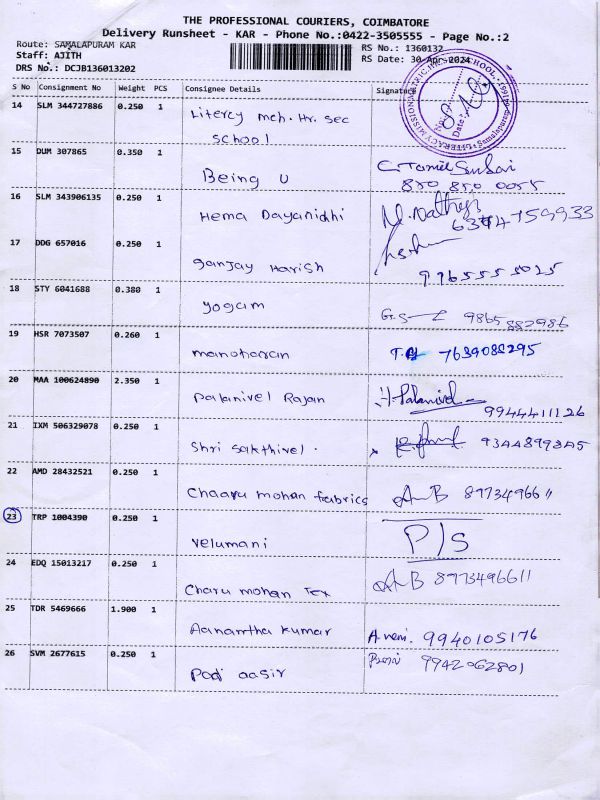 THE PROFESSIONAL COURIERS, COIMBATORE
Delivery Runsheet - KAR - Phone No.:0422-3505555 - Page No.:2
Route: SAMALAPURAM KAR
RS No.: 1360132
Staff: AJITH
RS Date: 30 Apr 2024
DRS No.: DCJB136013202
S No Consignment No Weight PCS Consignee Details Signature
14 SLM 344727886 0.250 1 Litercy meh. Hr. sec
school
15 DUM 307865 0.350 1 Being U
850 850 0055
16 SLM 343906135 0.250 1 Hema Dayanidhi
6374759933
17 DDG 657016 0.250 1 ganjay Harish
9965555025
18 STY 6041688 0.380 1 yogam 9865582986
19 HSR 7073507 0.260 1 manoharan 7639088295
20 MAA 100624890 2.350 1 Palanivel Rajan
9944411126
21 IXM 506329078 0.250 1 Shri Sakthivel. 9344899845
22 AMD 28432521 0.250 1 Chaaru mohan fabrics 8973496611
23 TRP 1004390 0.250 1 velumani P/S
24 EDQ 15013217 0.250 1 Charu mohan Tex 8973496611
25 TDR 5469666 1.900 1 Aanantha kumar A. veni. 9940105176
26 SVM 2677615 0.250 1 Podi aasir 9942062801